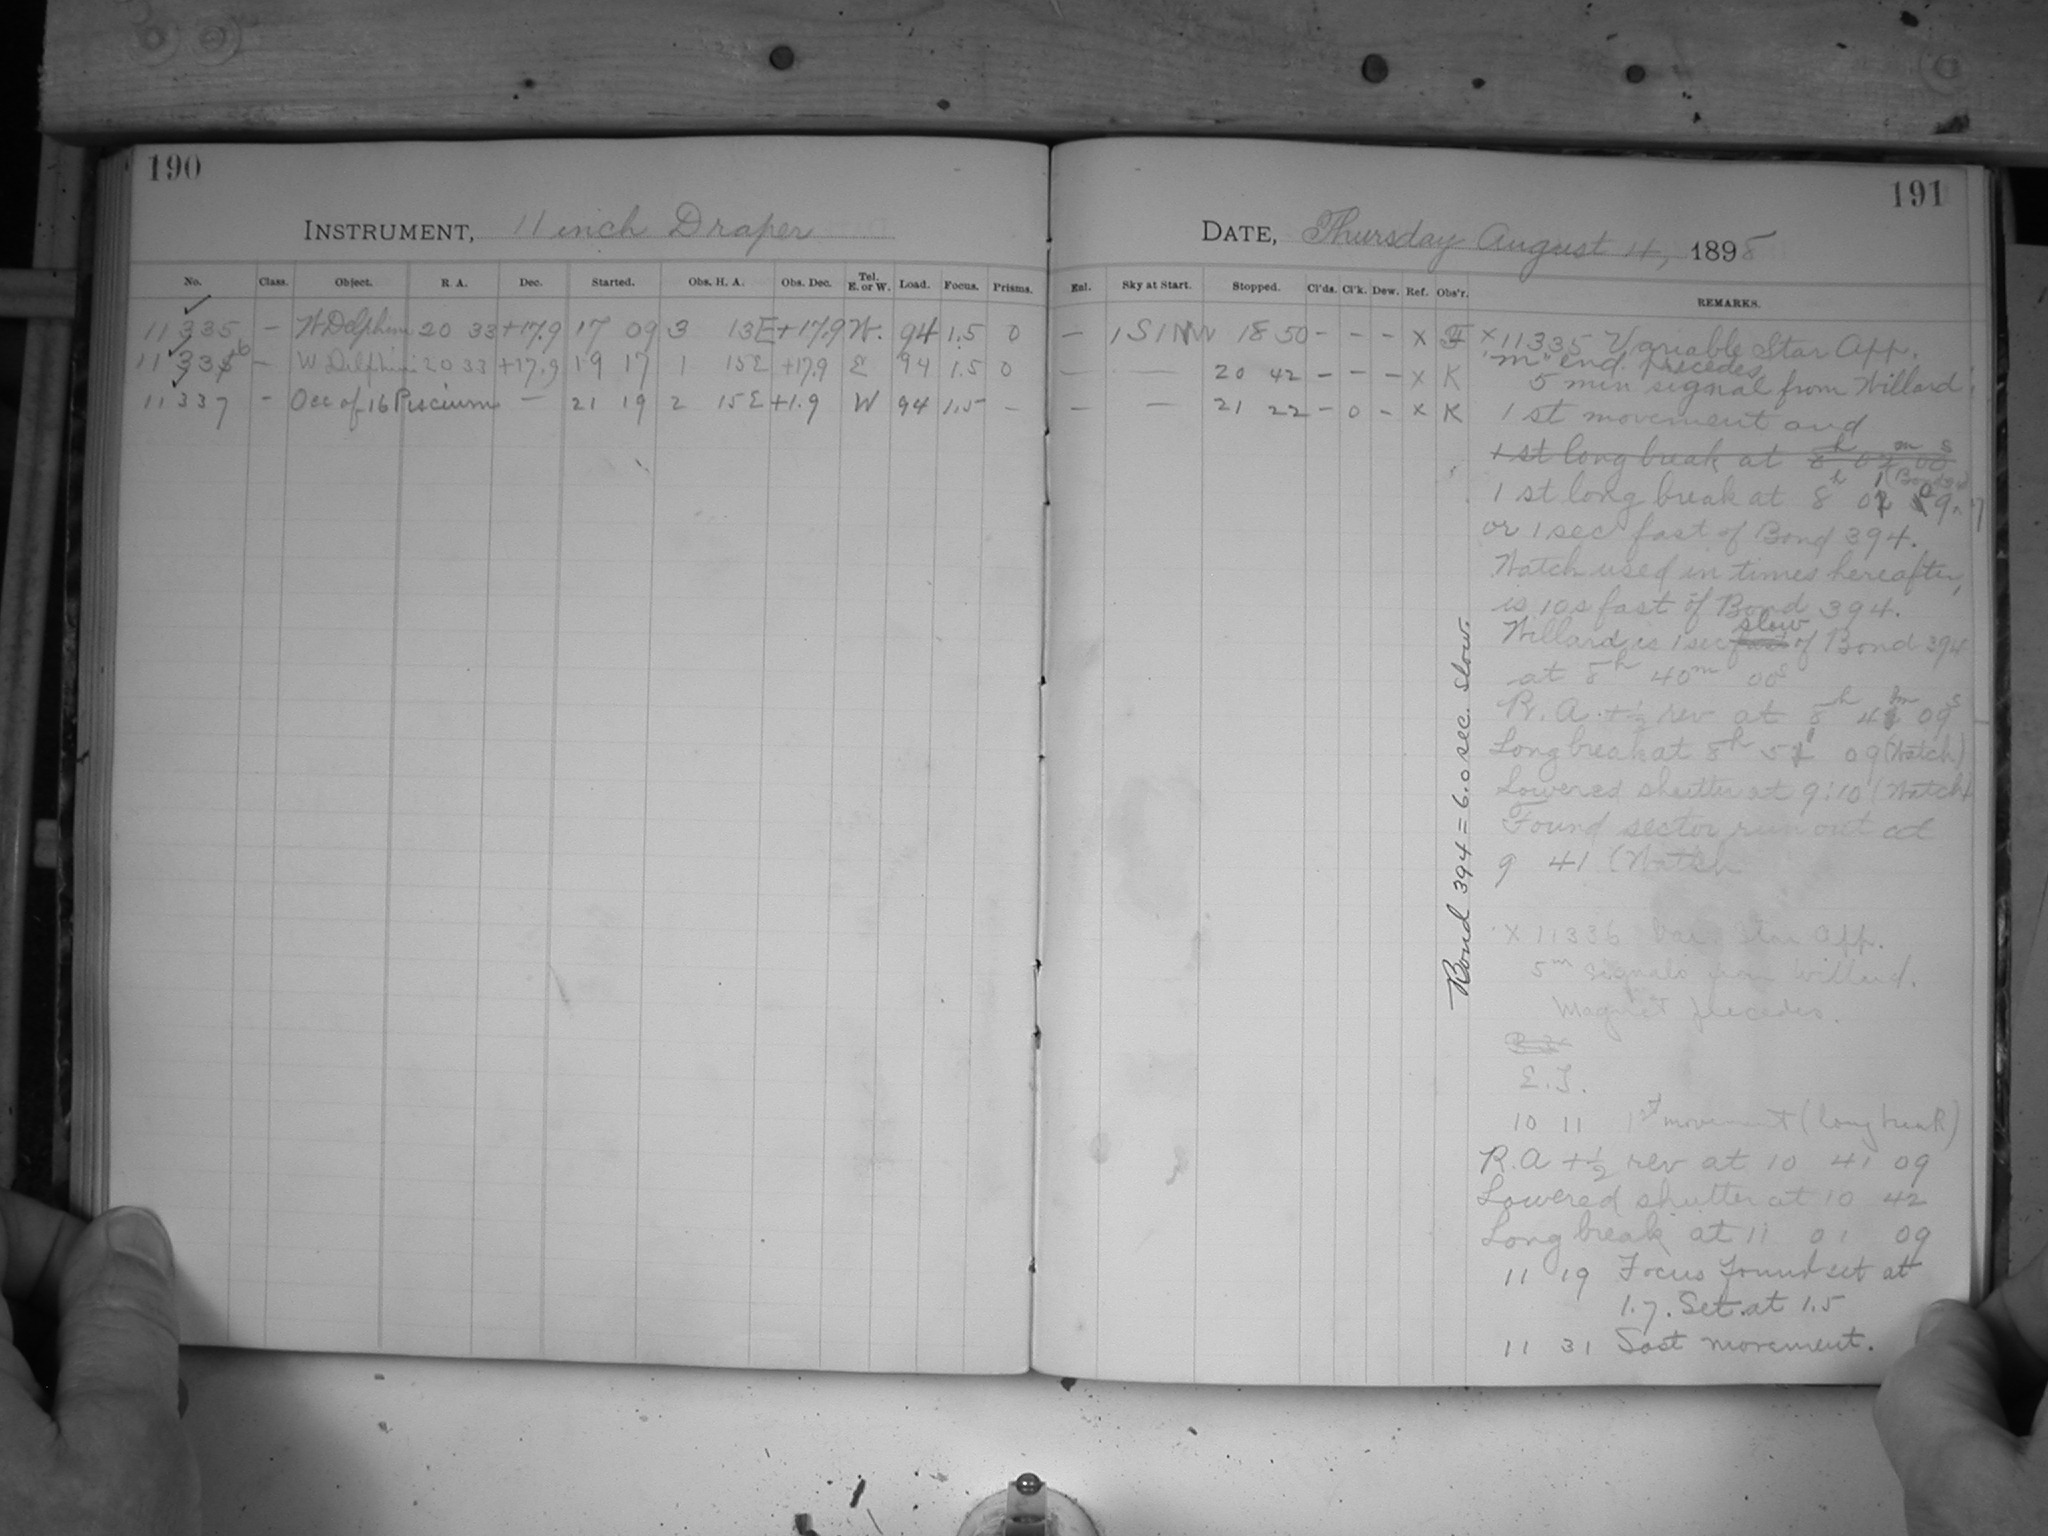 190
INSTRUMENT, 11 inch Draper
No. Class. Object. R. A. Dec. Started. Obs. H. A. Obs. Dec. Tel. E. or W. Load. Focus. Prisms.
11335 – W Delphini 20 33 +17.9 17 09 3 13E +17.9 W. 94 1.5 0
11336 – W Delphini 20 33 +17.9 19 17 1 15E +17.9 E 94 1.5 0
11337 – Occ of 16 Piscium – 21 19 2 15E +1.9 W 94 1.5 –
191
DATE, Thursday August 4, 1898
Enl. Sky at Start. Stopped. Cl'ds. Cl'k. Dew. Ref. Obs'r. REMARKS.
– 1S1NW 18 50 – – – x F
– — 20 42 – – – x K
– — 21 22 – 0 – x K
x 11335 Variable Star App.
"m" end precedes
5 min signal from Willard
1st movement and
1st long break at 8h 02m 00s
(Bond 394)
1st long break at 8h 01 09.
or 1 sec fast of Bond 394.
Watch used in times hereafter,
is 10s fast of Bond 394.
slow
Willard is 1 sec fast of Bond 394
at 8h 40m 00s
R.A. +½ rev at 8h 4 m 09s
Long break at 8h 51 09 (Watch)
Lowered shutter at 9:10 (Watch)
Found sector run out at
9 41 (Watch
x 11336 Var. Star App.
5m signals from Willard.
Magnet precedes.
E.T.
10 11 1st movement (long break)
R.A +½ rev at 10 41 09
Lowered shutter at 10 42
Long break at 11 01 09
11 19 Focus found set at
1.7. Set at 1.5
11 31 Last movement.
Bond 394 = 6.0 sec. slow.